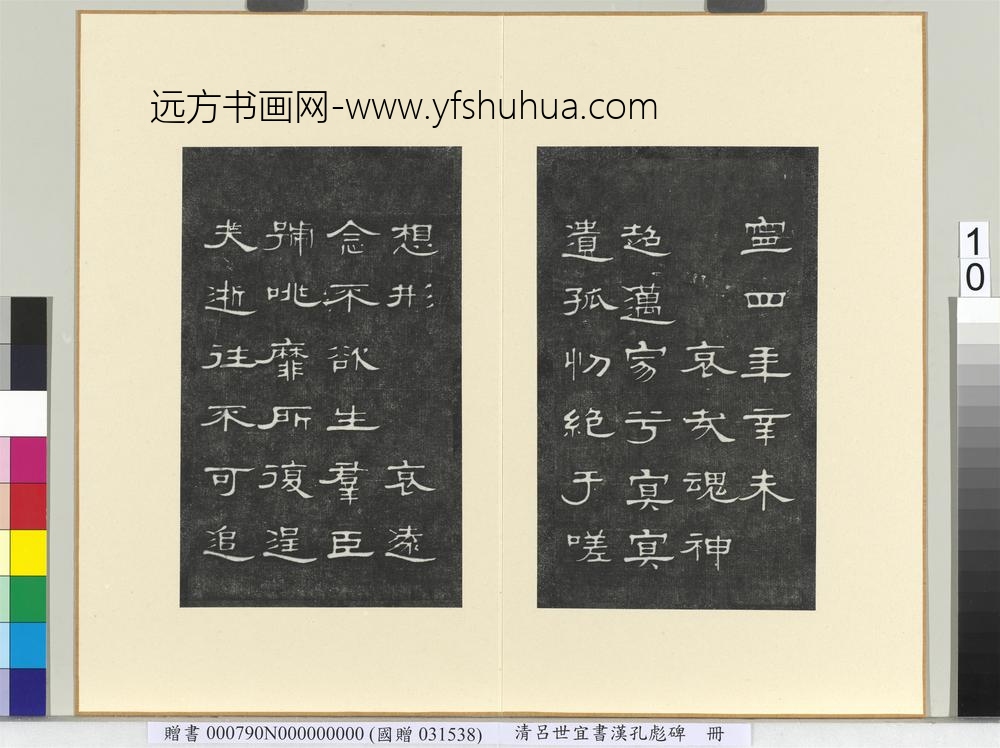 远方书画网-www.yfshuhua.com
寧四年辛未
哀哉魂神
超邁家兮冥冥
遺孤忉絕于嗟
想形 哀遠
念不欲生羣臣
號咷靡所復逞
夫逝往不可追
10
贈書 000790N000000000 (國贈 031538) 清呂世宜書漢孔彪碑 冊